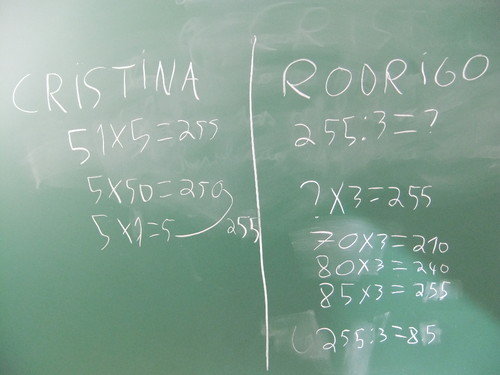 CRISTINA
51X5=255
5X50=250
5X1=5 255
RODRIGO
255:3=?
?X3=255
70X3=210
80X3=240
85X3=255
255:3=85